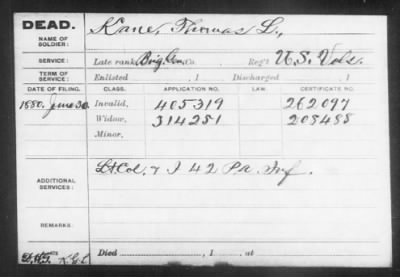 DEAD. Kane, Thomas L.,
NAME OF SOLDIER:
SERVICE: Late rank Brig. Gen, Co. Reg't U.S. Vols.
TERM OF SERVICE: Enlisted , 1 Discharged , 1
DATE OF FILING. CLASS. APPLICATION NO. LAW. CERTIFICATE NO.
1880. June 30. Invalid, 405319 262097
Widow, 314251 208488
Minor,
ADDITIONAL SERVICES: Lt Col. 42 Pa. Inf.
REMARKS:
Died , 1 , at